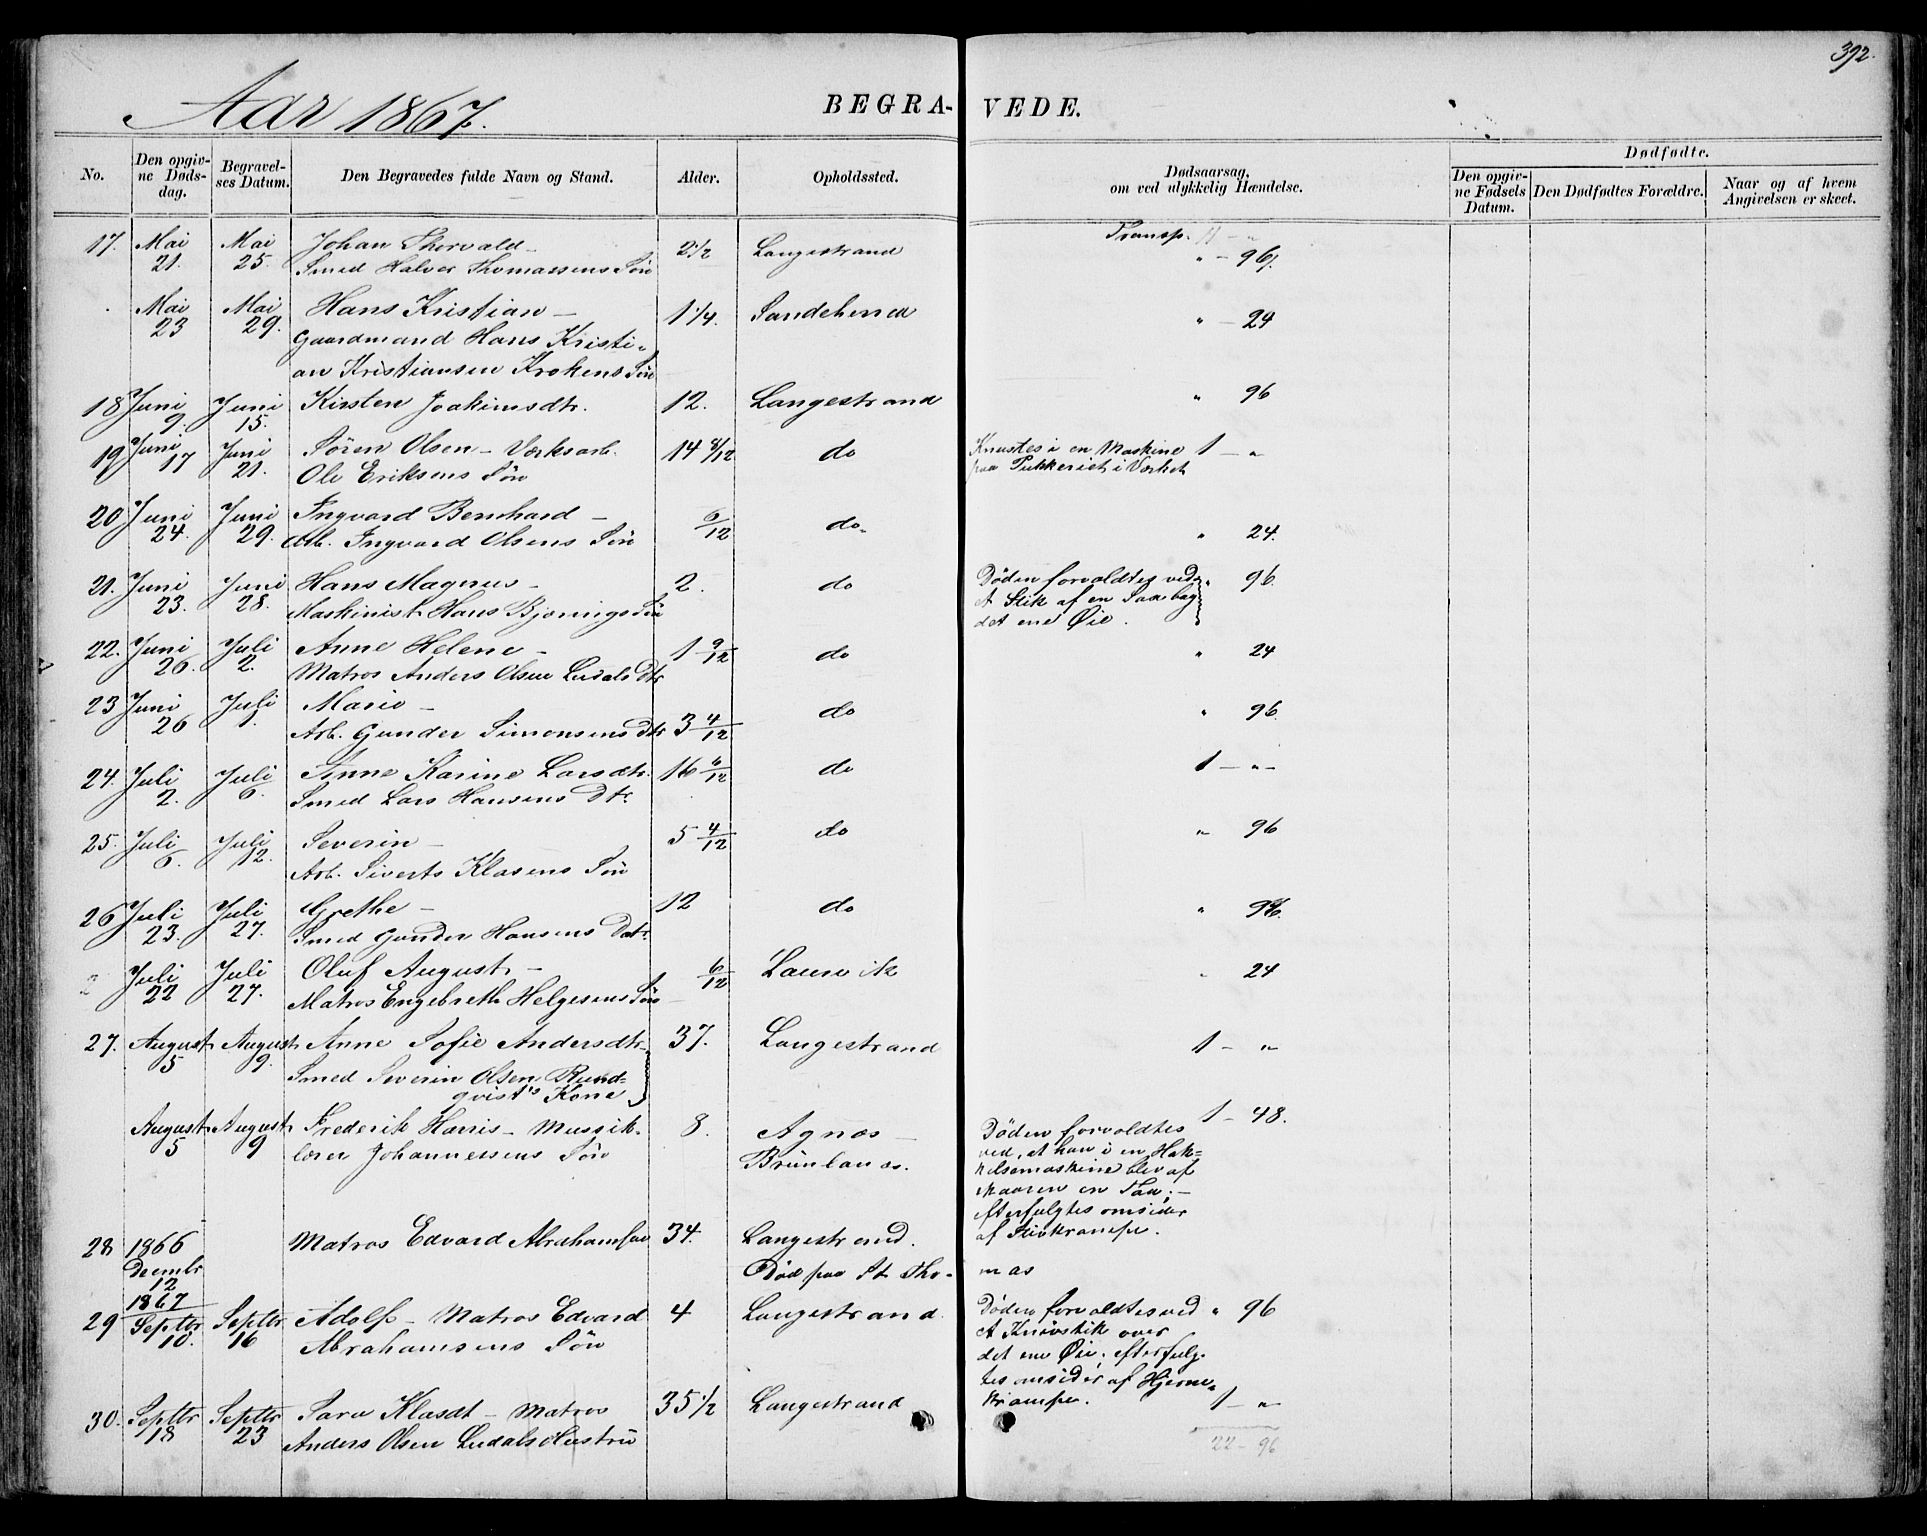 392.
Aar 1867.
BEGRA- VEDE.
No.
Den opgiv-
ne Døds-
dag.
Begravel-
ses Datum.
Den Begravedes fulde Navn og Stand.
Alder.
Opholdssted.
Dødsaarsag,
om ved ulykkelig Hændelse.
Dødfødte.
Den opgiv-
ne Fødsels
Datum.
Den Dødfødtes Forældre.
Naar og af hvem
Angivelsen er skeet.
Transp.
17. Mai Mai Johan Thorvald – 2 1/2 Langestrand " – 96.
21. 25. Smed Halvor Thomassens Søn
Mai Mai Hans Kristian – 1 1/4. Sandehered " – 24
23 29. Gaardmand Hans Kristi-
an Kristiansen Krokens Søn
18 Juni Juni Kirsten Joakimsdtr. 12. Langestrand " 96
9. 15.
19 Juni Juni Søren Olsen – Værksarb. 14 8/12 do Knustes i en Maskine 1 – "
17 21. Ole Eriksens Søn paa Pukkeriet i Værket
20 Juni Juni Ingvard Bernhard – 6/12 do. " 24.
24. 29. Arb. Ingvard Olsens Søn
21. Juni Juni Hans Magnus – 2. do Døden forvoldtes ved " 96.
23. 28. Maskinist Hans Bjønnings Søn et Stik af en Sax bag
det ene Øie.
22. Juni Juli Anne Helene – 1 9/12 do " 24
26. 2. Matros Anders Olsen Ludals Dtr
23 Juni Juli Marie – do " 96.
26 1. Arb. Gunder Simonsens Dtr 3 4/12
24. Juli Juli Anne Karine Larsdtr. 16 6/12 do 1 – " –
2. 6. Smed Lars Hansens Dtr.
25. Juli Juli Severin – 5 4/12 do " 96
6. 12. Arb. Siverts Klasens Søn
26 Juli Juli Grethe – 12 do " 96.
23. 27. Smed Gunder Hansens Datr.
Juli Juli Oluf August – 6/12 Laurvik " 24
22 27. Matros Engebreth Helgesens Søn
27. August August Anne Sofie Andersdtr. 37. Langestrand 1 – "
5 9. Smed Severin Olsen Rund-
qvist's Kone
August August Frederik Harris – Mussik- 8. Agnæs – 1 – 48.
5 9 lærer Johannersens Søn Brunlanæs. Døden forvoldtes
ved, at han i en Hak-
kelsemaskine blev af
skaaren en Taa, –
efterfulgtes omsider
af Stivkrampe.
28 1866 Matros Edvard Abrahamsen 34. Langestrand.
Decembr Død paa St. Tho- mas
12
1867
29 Septbr Septbr Adolf – Matros Edvard 4 Langestrand. Døden forvoldtes ved " 96
10. 16 Abrahamsens Søn et Knivstik over
det ene Øie, efterfulg-
tes omsider af Hjerne-
krampe.
30. Septbr Septbr Sara Klasdt – Matros 35 1/2 Langestrand 1 – "
18 23 Anders Olsen Ludals Hustru
22 – 96